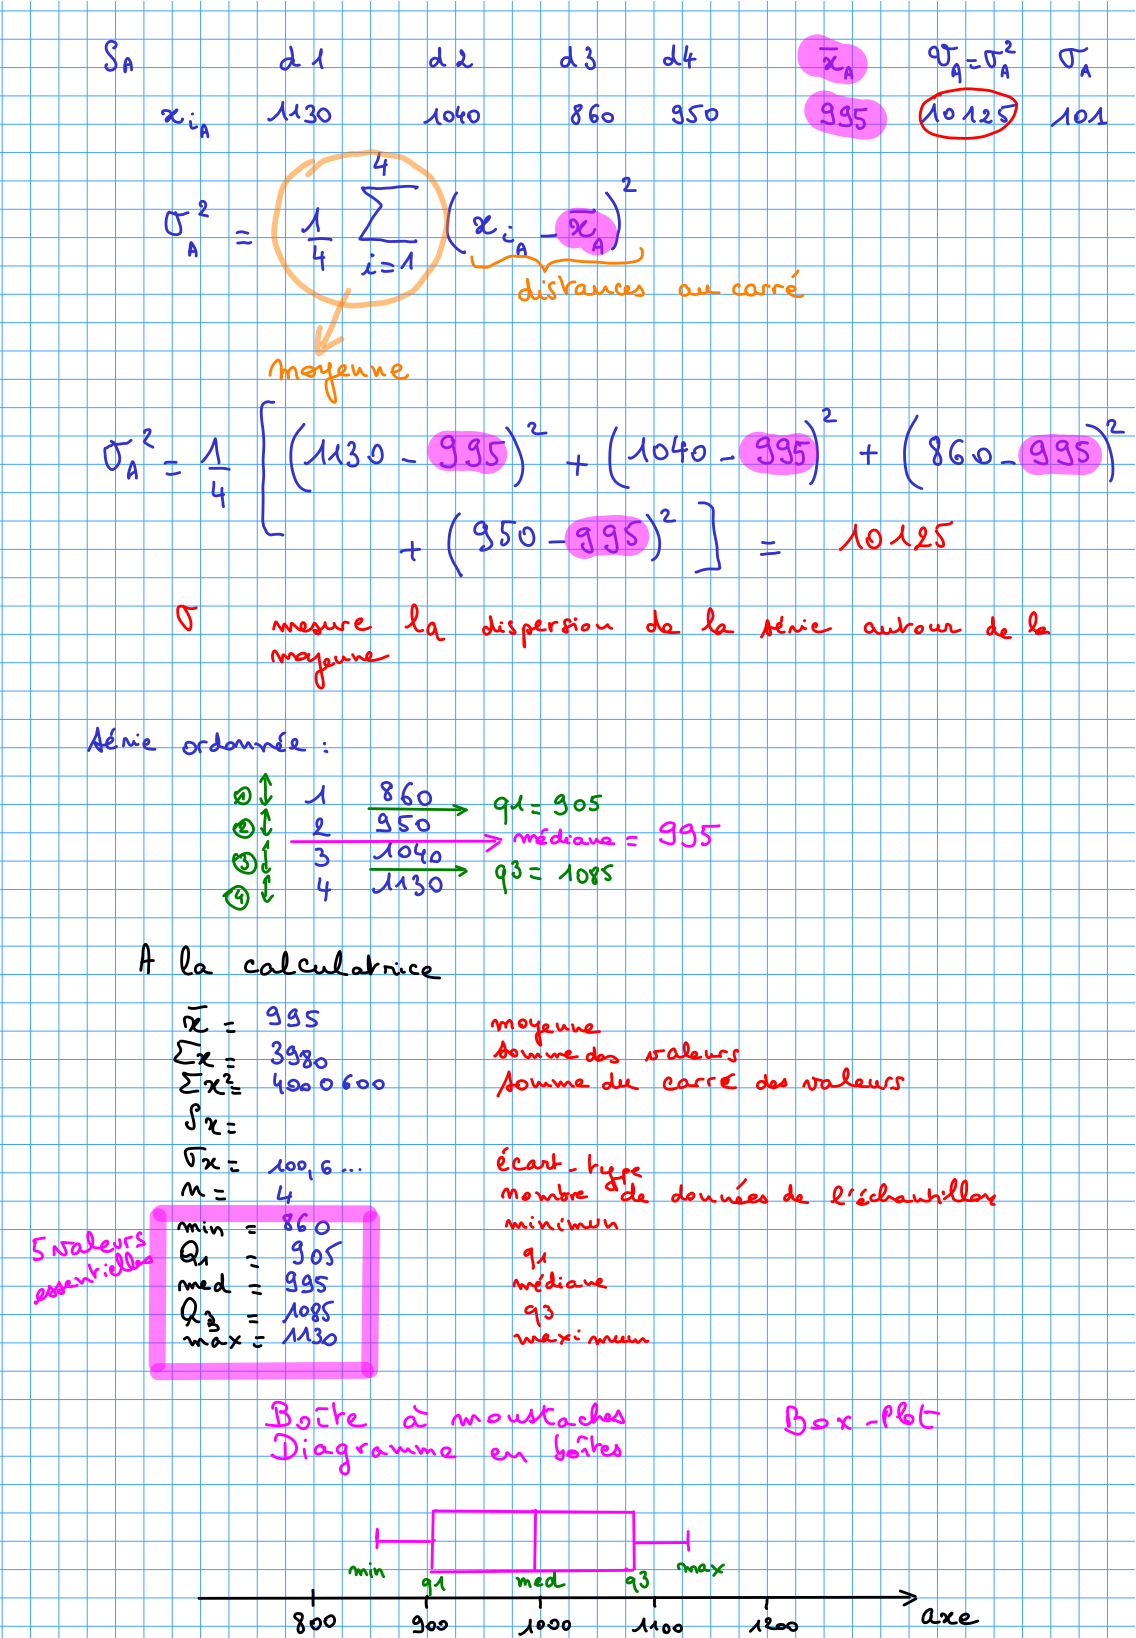 S_A d1 d2 d3 d4 x̄_A V_A = σ_A² σ_A
x_{i_A} 1130 1040 860 950 995 10125 101
σ_A² = 1/4 Σ_{i=1}^{4} (x_{i_A} - x̄_A)²
distances au carré
moyenne
σ_A² = 1/4 [(1130 - 995)² + (1040 - 995)² + (860 - 995)²
+ (950 - 995)²] = 10125
σ mesure la dispersion de la série autour de la
moyenne
série ordonnée :
① 1 860 q1 = 905
② 2 950
médiane = 995
③ 3 1040 q3 = 1085
④ 4 1130
A la calculatrice
x̄ = 995 moyenne
Σx = 3980 somme des valeurs
Σx² = 4000600 somme du carré des valeurs
Sx =
σx = 100,6... écart-type
n = 4 nombre de données de l'échantillon
min = 860 minimun
5 valeurs
essentielles
Q1 = 905 q1
med = 995 médiane
Q3 = 1085 q3
max = 1130 maximum
Boîte à moustaches Box-Plot
Diagramme en boîtes
min q1 med q3 max
800 900 1000 1100 1200 axe